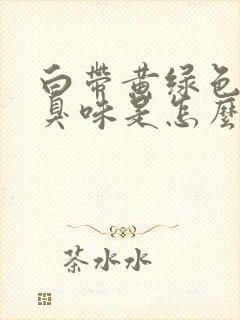 白带黄绿色
臭味是怎麽
茶水水